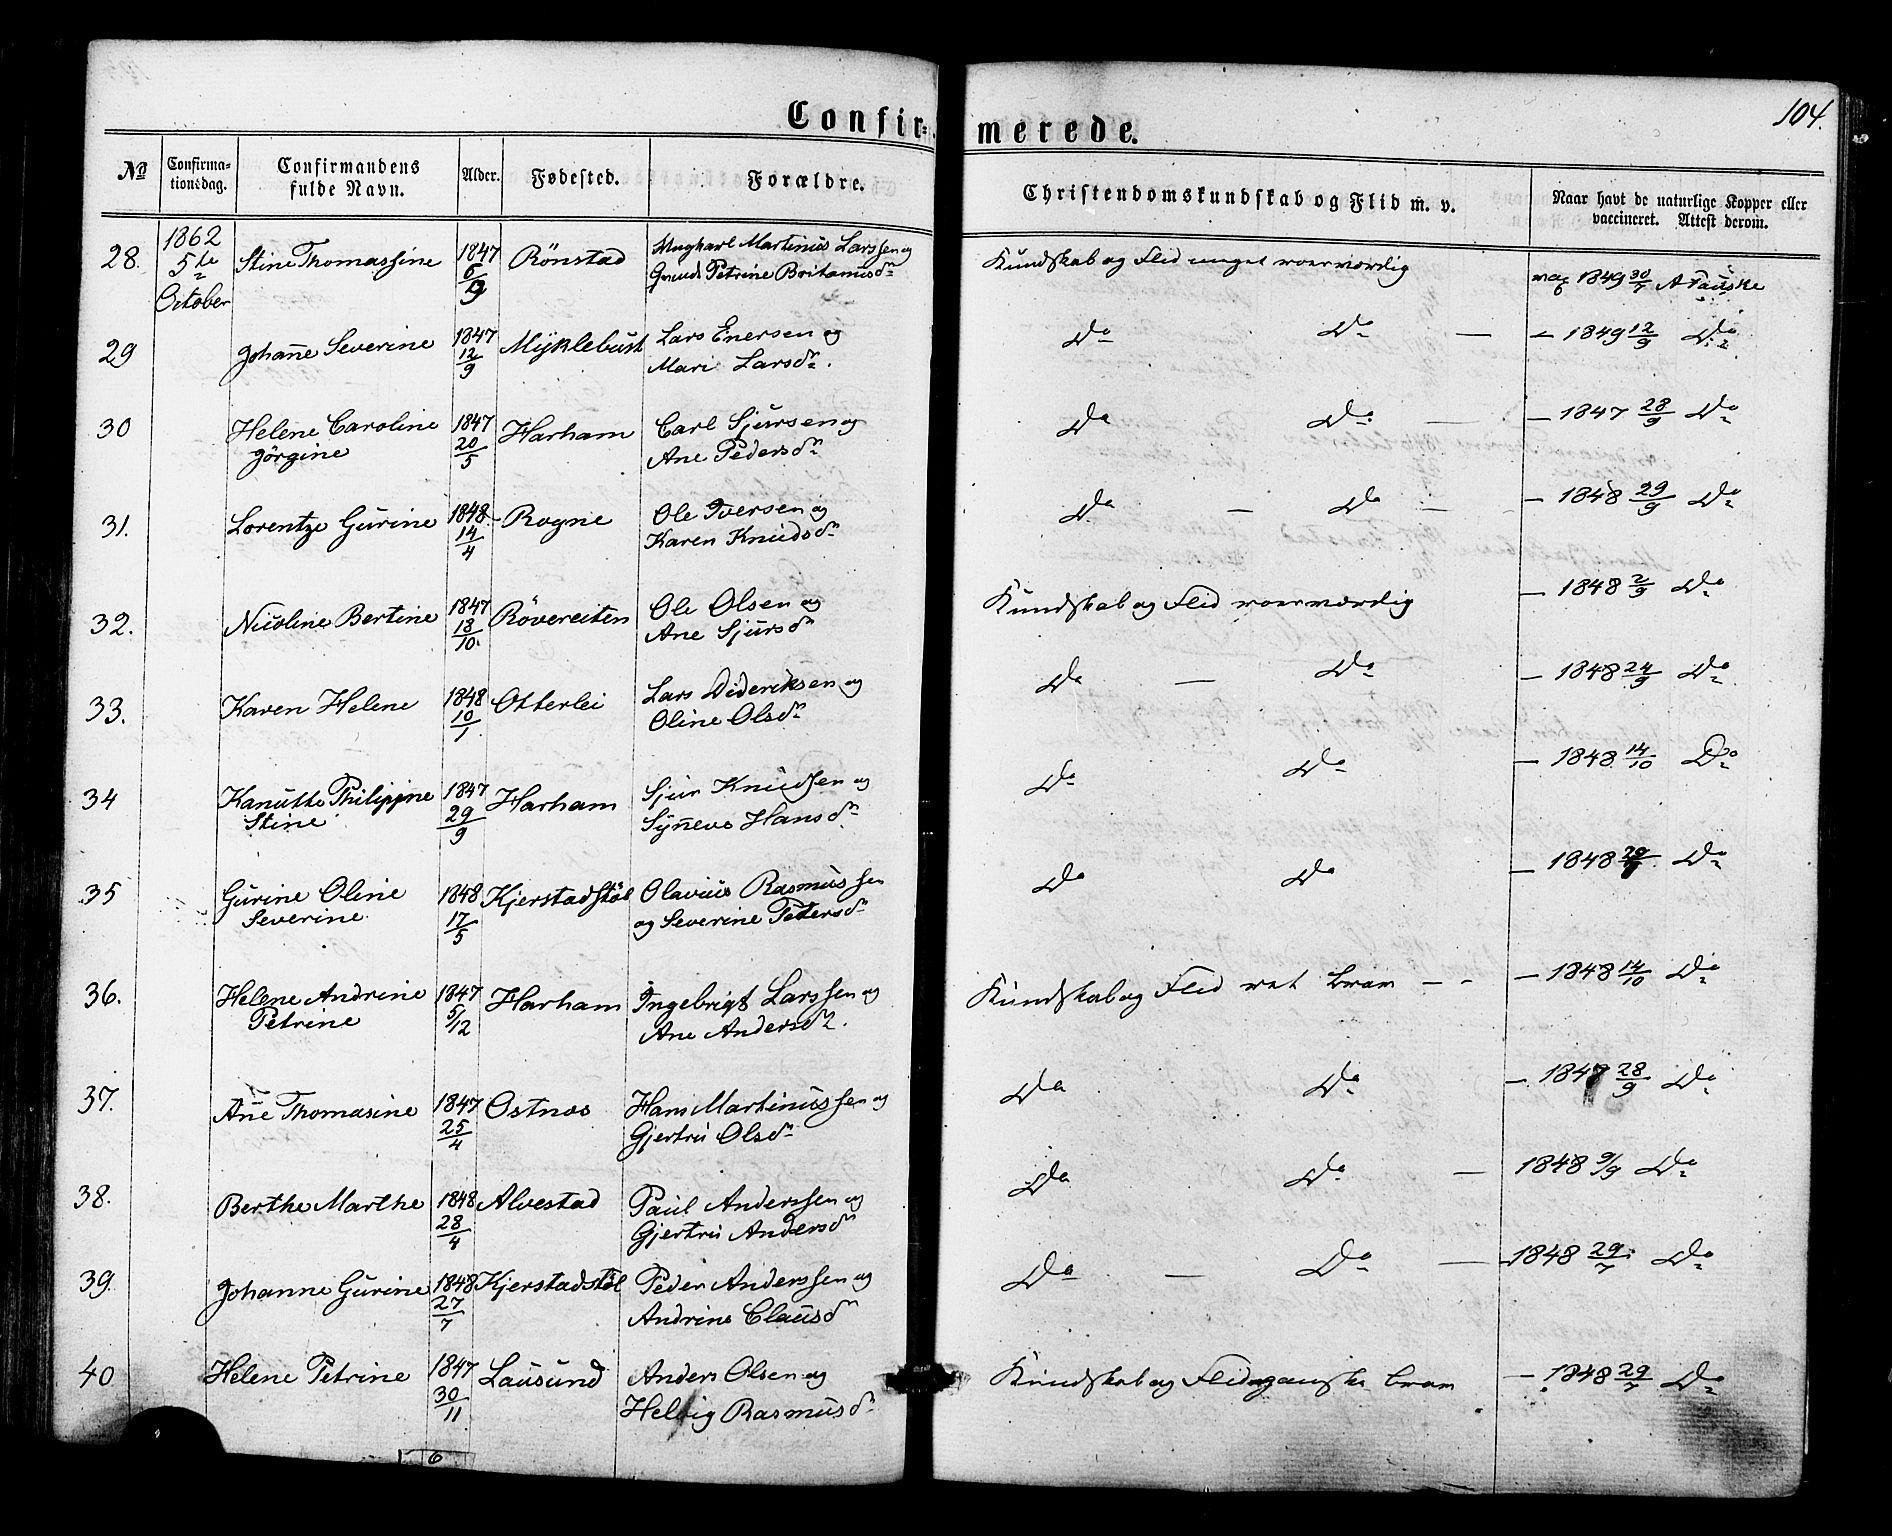 Confir-merede.
104.
No
Confirma-
tionsdag.
Confirmandens
fulde Navn.
Alder.
Fødested.
Forældre.
Christendomskundskab og Flid m. v.
Naar havt de naturlige Kopper eller
vaccineret. Attest derom.
28. 1862 5te October Stine Thomassine 1847 6/9 Rönstad Ungkarl Martinus Larssen og
Petrine Kundskab og Flid meget roesværdig 1849 30/7 A Fauske
29 Johanne Severine 1847 12/9 Myklebust Lars Enersen og
Mari Larsdr. Do Do — – 1849 12/9 Do
30 Helene Caroline 1847 20/5 Harham Carl Sjursen og
Jörgine Ane Pedersdr Do Do — – 1847 28/9 Do
31. Lorentze Gurine 1848 14/4 Rogne Ole Iversen og
Karen Knudsdr Do – Do – – 1848 29/9 Do
32. Nicoline Bertine 1847 18/10 Rövereiten Ole Olsen og
Ane Sjursdr Kundskab og Flid roesværdig – 1848 2/9 Do
33. Karen Helene 1848 10/1 Otterlei Lars Dideriksen og
Oline Olsdr Do — Do – 1848 24/9 Do
34 Kanutte Philippine 1847 29/9 Harham Sjur Knudsen og
Stine Synneve Hansdr Do Do – 1848 14/10 Do
35 Gurine Oline 1848 17/5 Kjerstadstöl Olavius Rasmussen
Severine og Severine Petersdr Do Do – 1848 Do
36. Helene Andrine 1847 5/12 Harham Ingebrigt Larssen og
Petrine Ane Andersdr. Kundskab og Flid ret bram – – – 1848 14/10 Do
37. Ane Thomasine 1847 25/4 Ostnæs Hans Martinussen og
Gjertru Olsdr Do Do – 1847 28/9 Do
38. Berthe Marthe 1848 28/4 Alvestad Paul Anderssen og
Gjertru Andersdr Do Do — 1848 9/9 Do
39. Johanne Gurine 1848 27/7 Kjerstadstöl Peder Anderssen og
Andrine Clausdr Do — Do — 1848 29/7 Do
40 Helene Petrine 1847 30/11 Lausund Anders Olsen og
Helvig Rasmusdr Kundskab og Flid ganske bram – 1848 29/7 Do
6